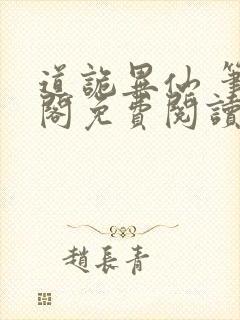 道詭異仙 筆
閣免費閱讀
趙長青